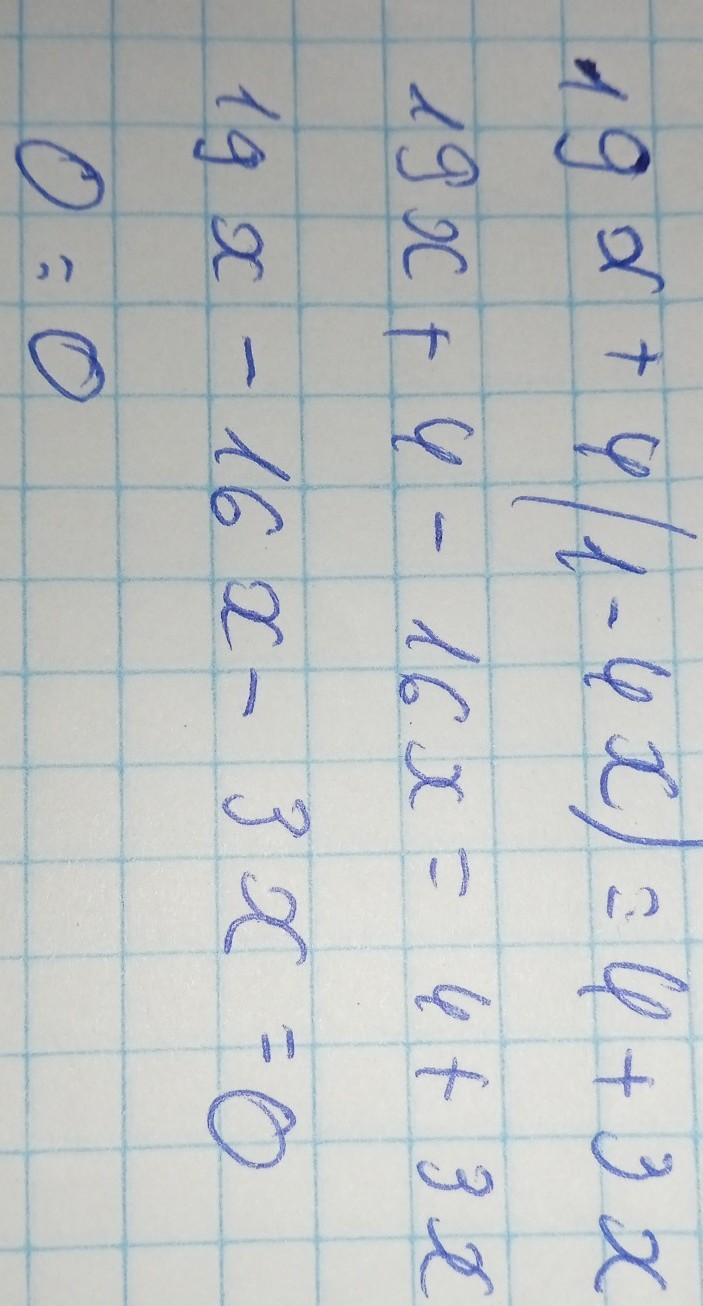 19x+4(1-4x)=4+3x
19x+4-16x=4+3x
19x-16x-3x=0
0=0